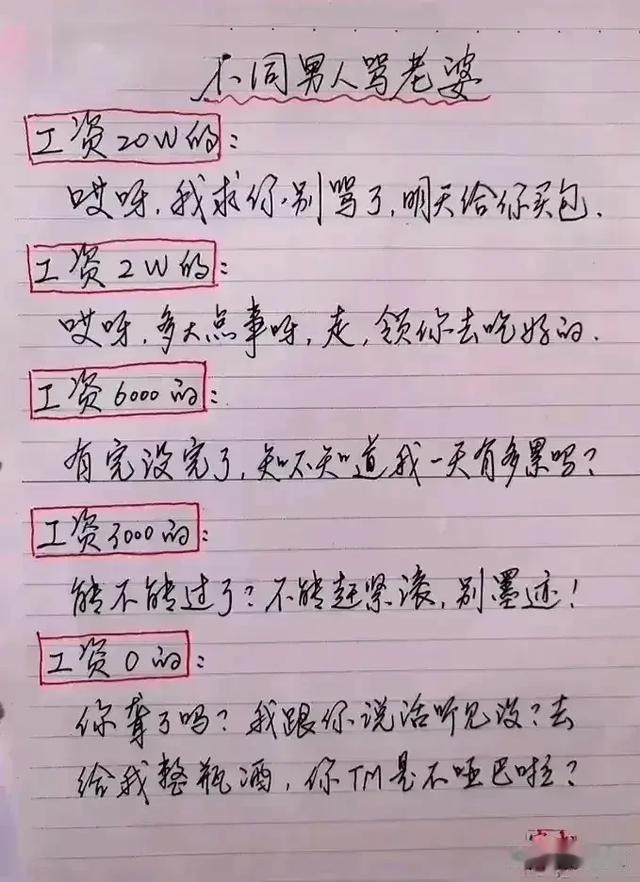 不同男人骂老婆
工资20W的：
哎呀，我求你，别骂了，明天给你买包．
工资2W的：
哎呀，多大点事呀，走，领你去吃好的．
工资6000的：
有完没完了，知不知道我一天有多累吗？
工资3000的：
能不能过了？不能赶紧滚，别墨迹！
工资0的：
你聋了吗？我跟你说话听见没？去
给我整瓶酒，你TM是不哑巴啦？